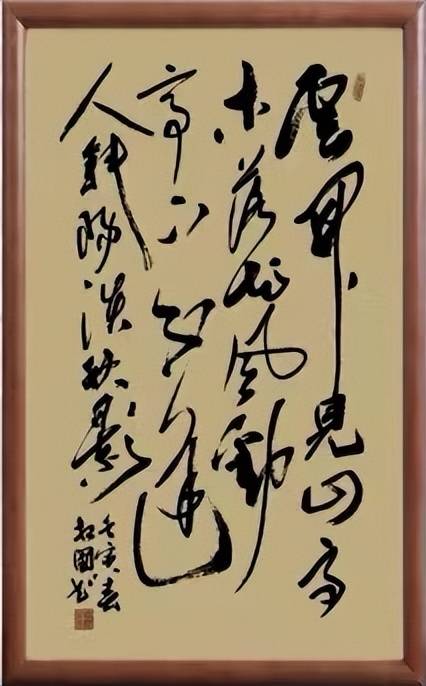 雲開見山高
木落知風勁
亭下不逢
人斜陽淡秋影
壬寅春
國書